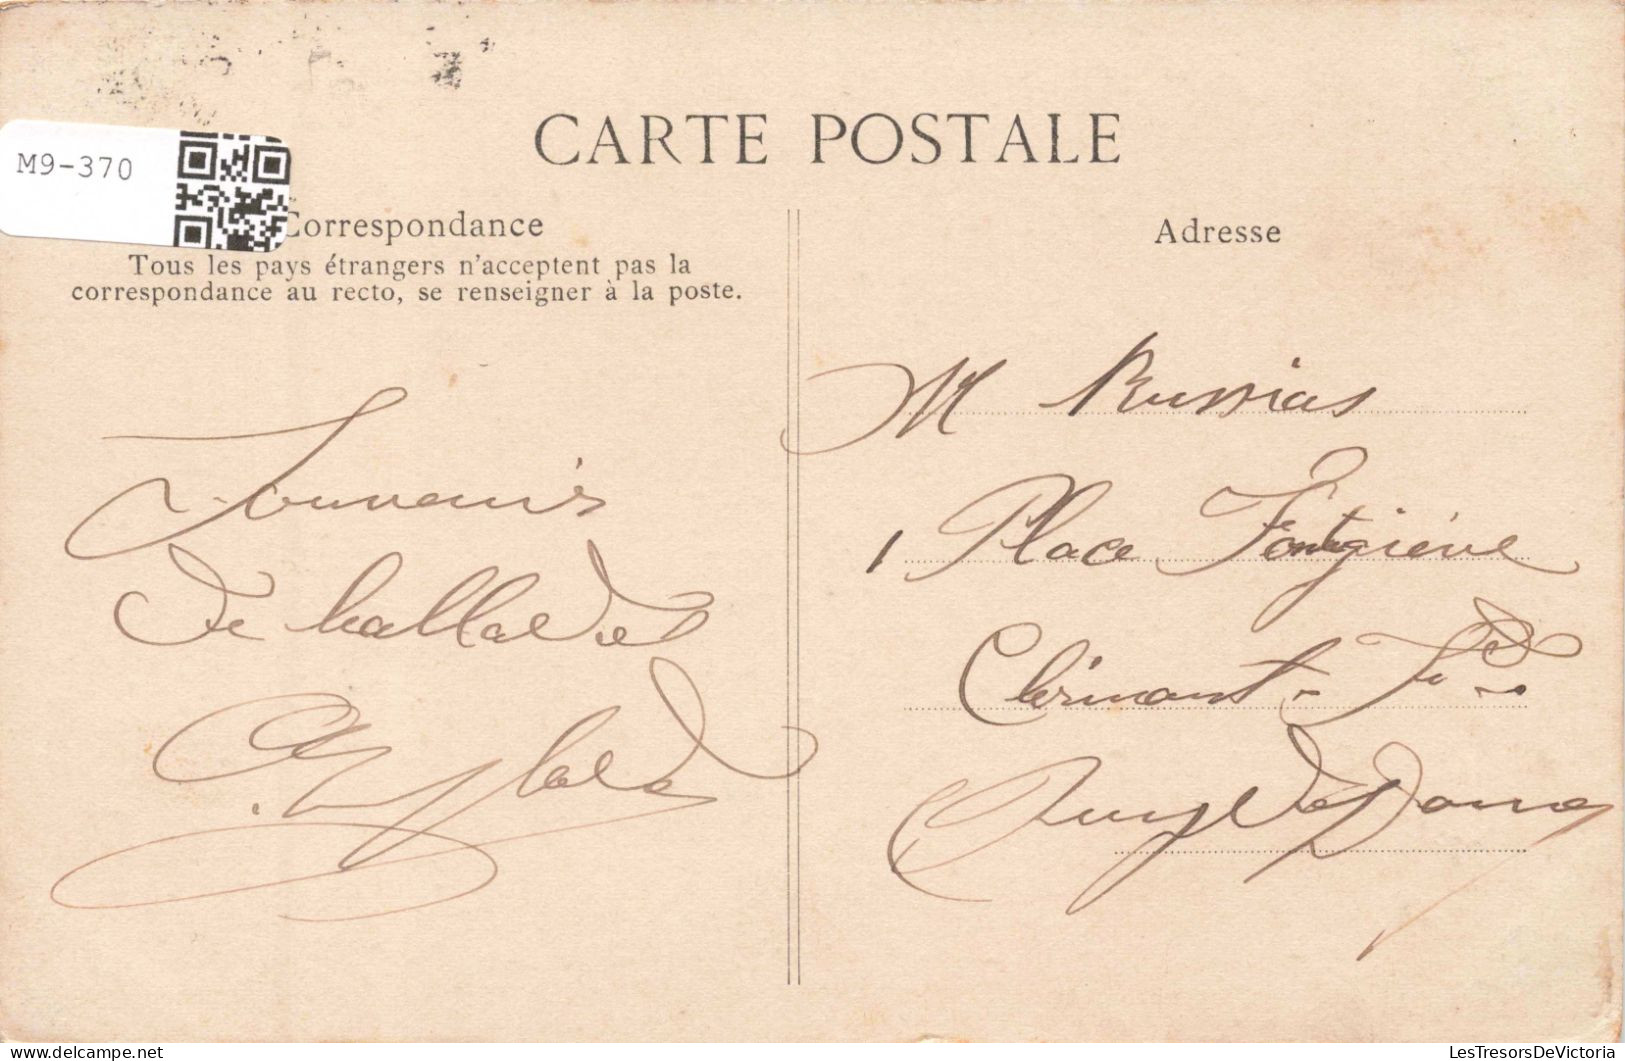 M9-370
CARTE POSTALE
Correspondance
Tous les pays étrangers n'acceptent pas la
correspondance au recto, se renseigner à la poste.
Souvenirs
de ballades
Adresse
M Russias
1 Place Fontgiève
Clermont-Fd
Puy de Dome
LesTresorsDeVictoria